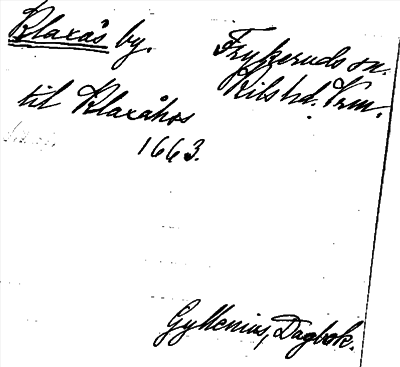 Klaxås by. Frykeruds sn.
Kils hd. Vrm.
til Klaxåhos
1663.
Gyllenius, Dagbok.